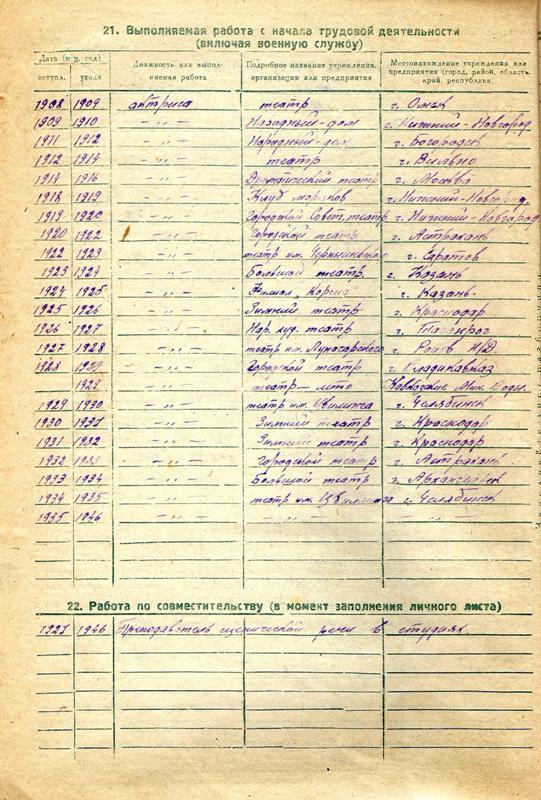 21. Выполняемая работа с начала трудовой деятельности
(включая военную службу)
Дата (м-ц, год)
вступл. ухода
Должность или выпол-
няемая работа
Подробное название учреждения,
организации или предприятия
Местонахождение учреждения или
предприятия (город, район, область,
край, республика)
1908 1909 актриса театр г. Омск
1909 1910 —„— Народный-дом г. Нижний-Новгород
1911 1912 —„— Народный-дом г. Богородск
1912 1914 —„— театр г. Вильно
1914 1916 —„— Драматический театр г. Москва
1918 1919 —„— Клуб моряков г. Нижний-Новгород.
1919 1920 —„— Городской Совет. театр г. Нижний-Новгород
1920 1922 —„— Городской театр г. Астрахань
1922 1923 —„— театр им. Чернышевского г. Саратов
1923 1924 —„— Большой театр г. Казань
1924 1925 —„— г. Казань
1925 1926 —„— Зимний театр г. Краснодар
1926 1927 —„— Нар. худ. театр г. Таганрог
1927 1928 —„— театр им. Луначарского г. Ростов Н/Д.
1928 1929 —„— Городской театр г. Владикавказ
1928 —„— театр — лето Кавказские Мин. Воды.
1929 1930 —„— театр им. Цвилинга г. Челябинск
1930 1931 —„— Зимний театр г. Краснодар
1931 1932 —„— Зимний театр г. Краснодар
1932 1933 —„— Городской театр г. Астрахань
1933 1934 —„— Большой театр г. Архангельск
1934 1935 —„— театр им. Цвилинга г. Челябинск
1935 1946 —„— —„— —„—
22. Работа по совместительству (в момент заполнения личного листа)
1946 Преподаватель сценической речи в студиях.